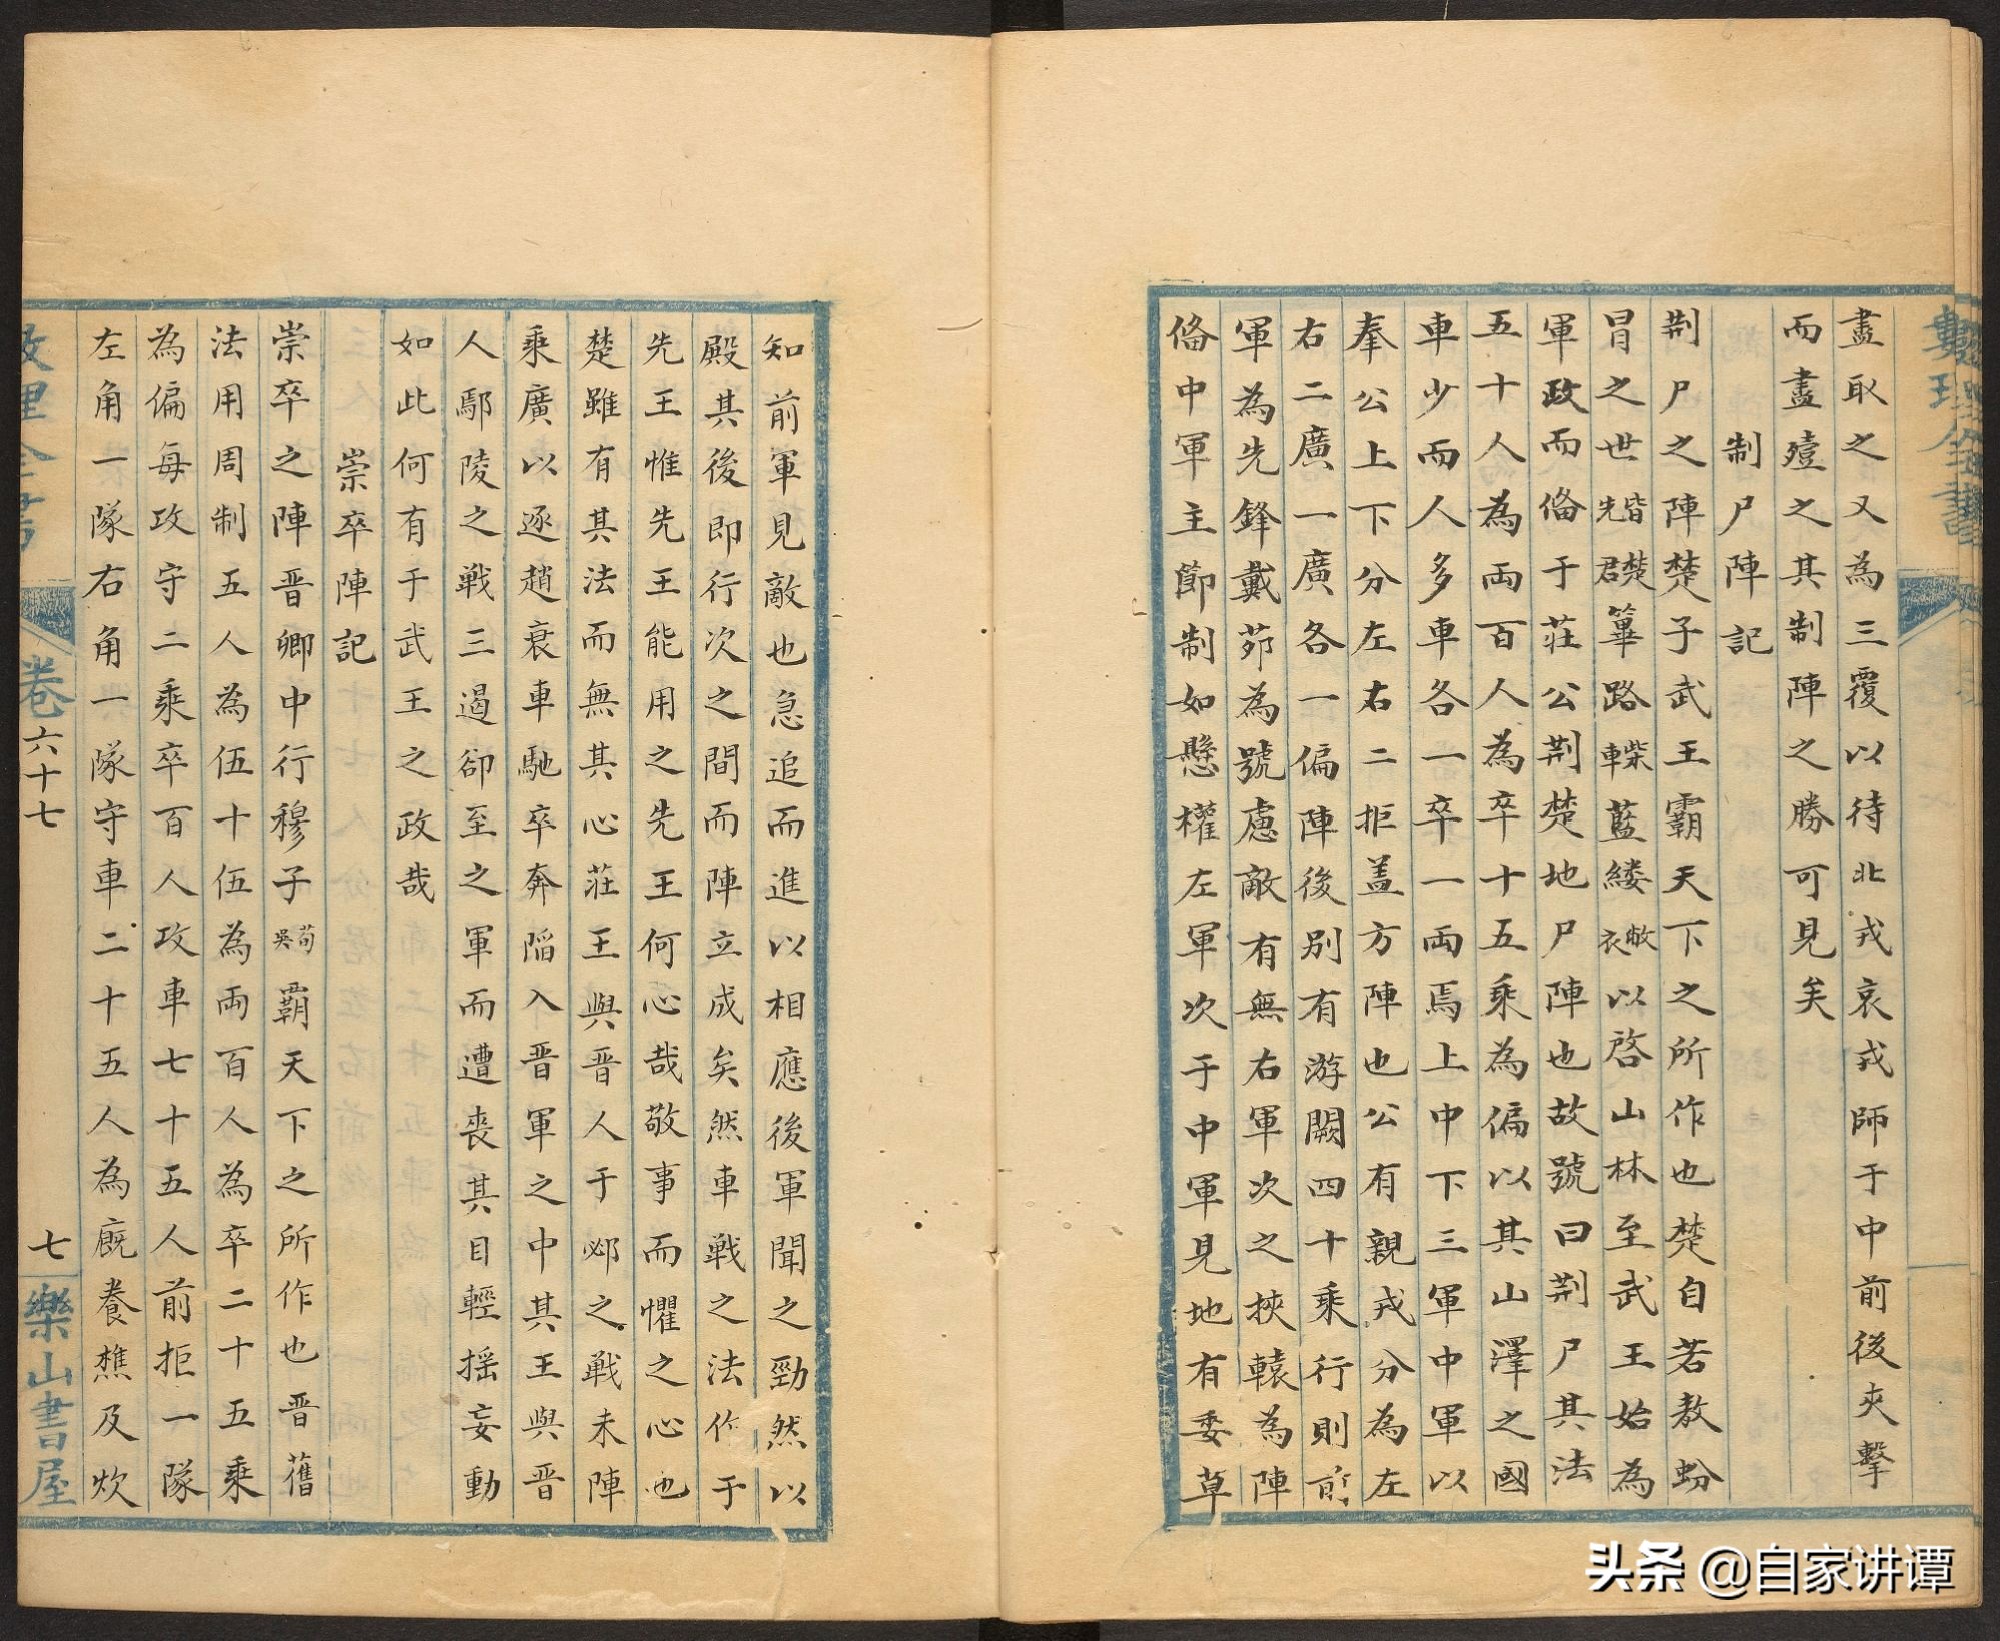 盡取之又為三覆以待北戎哀戎師于中前後夾擊
而盡殪之其制陣之勝可見矣
制尸陣記
荆尸之陣楚子武王霸天下之所作也楚自若敖蚡
冒之世皆楚先君篳路柴車藍縷敝衣以啓山林至武王始為
軍政而俻于莊公荆楚地尸陣也故號曰荆尸其法
五十人為両百人為卒十五乘為偏以其山澤之國
車少而人多車各一卒一両焉上中下三軍中軍以
奉公上下分左右二拒盖方陣也公有親戎分為左
右二廣一廣各一偏陣後別有游闕四十乘行則前
軍為先鋒戴茆為號慮敵有無右軍次之挾轅為陣
俻中軍主節制如懸權左軍次于中軍見地有委草
知前軍見敵也急追而進以相應後軍聞之勁然以
殿其後即行次之間而陣立成矣然車戦之法作于
先王惟先王能用之先王何心哉敬事而懼之心也
楚雖有其法而無其心莊王與晋人于邲之戦未陣
乘廣以逐趙衰車馳卒奔陷入晋軍之中其王與晋
人鄢陵之戦三遏郤至之軍而遭喪其目輕揺妄動
如此何有于武王之政哉
崇卒陣記
崇卒之陣晋卿中行穆子荀吳覇天下之所作也晋舊
法用周制五人為伍十伍為両百人為卒二十五乘
為偏每攻守二乘卒百人攻車七十五人前拒一隊
左角一隊右角一隊守車二十五人為廐養樵及炊
卷六十七
七
樂山書屋
头条 @自家讲谭